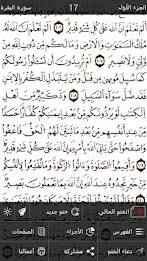 الجزء الأول 17 سورة البقرة
أَلَمْ تَعْلَمْ أَنَّ اللَّهَ عَلَىٰ كُلِّ شَيْءٍ قَدِيرٌ ١٠٦ أَلَمْ تَعْلَمْ أَنَّ اللَّهَ
لَهُ مُلْكُ السَّمَاوَاتِ وَالْأَرْضِ وَمَا لَكُم مِّن دُونِ اللَّهِ
مِن وَلِيٍّ وَلَا نَصِيرٍ ١٠٧ أَمْ تُرِيدُونَ أَن تَسْأَلُوا رَسُولَكُمْ
كَمَا سُئِلَ مُوسَىٰ مِن قَبْلُ وَمَن يَتَبَدَّلِ الْكُفْرَ بِالْإِيمَانِ
فَقَدْ ضَلَّ سَوَاءَ السَّبِيلِ ١٠٨ وَدَّ كَثِيرٌ مِّنْ أَهْلِ
الْكِتَابِ لَوْ يَرُدُّونَكُم مِّن بَعْدِ إِيمَانِكُمْ كُفَّارًا حَسَدًا
مِّنْ عِندِ أَنفُسِهِم مِّن بَعْدِ مَا تَبَيَّنَ لَهُمُ الْحَقُّ فَاعْفُوا
وَاصْفَحُوا حَتَّىٰ يَأْتِيَ اللَّهُ بِأَمْرِهِ إِنَّ اللَّهَ عَلَىٰ كُلِّ شَيْءٍ
قَدِيرٌ ١٠٩ وَأَقِيمُوا الصَّلَاةَ وَآتُوا الزَّكَاةَ وَمَا تُقَدِّمُوا
لِأَنفُسِكُم مِّنْ خَيْرٍ تَجِدُوهُ عِندَ اللَّهِ إِنَّ اللَّهَ
الختم الحالي ختم جديد
الفهرس الأجزاء الصفحات
دعاء الختم مشاركة أعمالنا